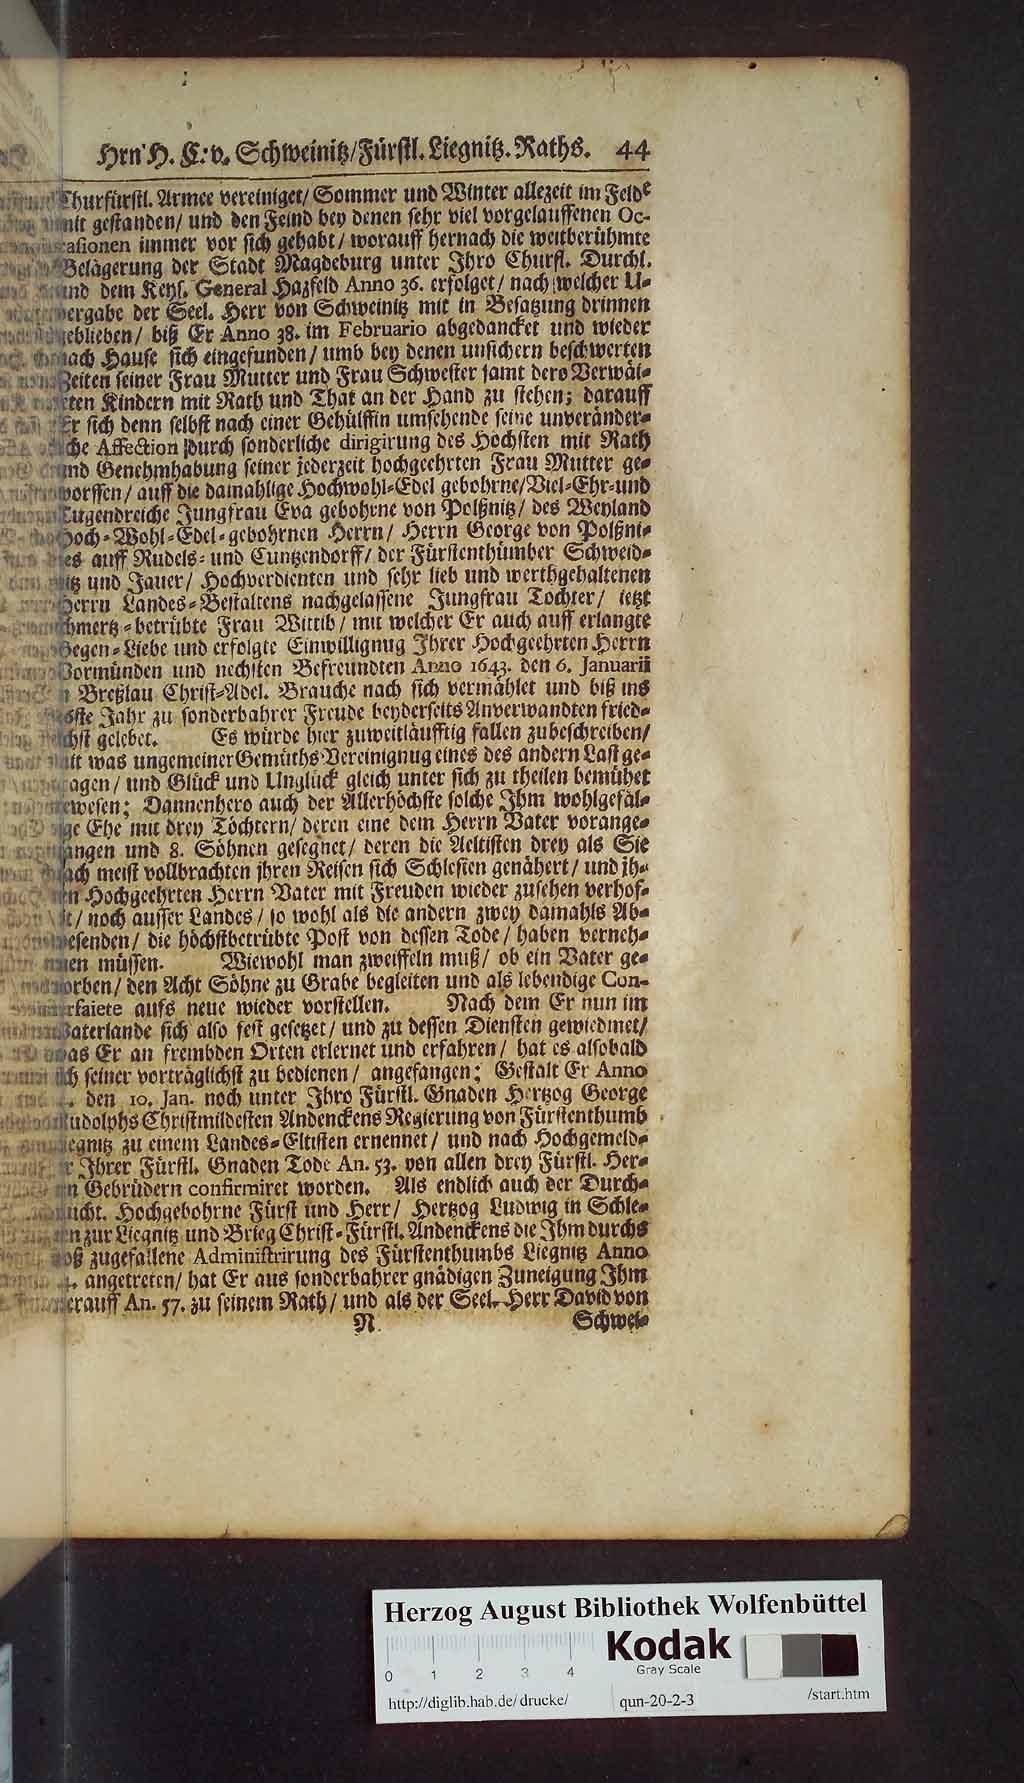 Hrn H. C. v. Schweinitz/Fürstl. Liegnitz. Raths. 44
Churfürstl. Armee vereiniget/ Sommer und Winter allezeit im Felde
mit gestanden/ und den Feind bey denen sehr viel vorgelauffenen Oc-
casionen immer vor sich gehabt/ worauff hernach die weitberühmte
Belägerung der Stadt Magdeburg unter Ihro Churfl. Durchl.
und dem Keys. General Hazfeld Anno 36. erfolget/ nach welcher U-
bergabe der Seel. Herr von Schweinitz mit in Besatzung drinnen
geblieben/ biß Er Anno 38. im Februario abgedancket und wieder
nach Hause sich eingefunden/ umb bey denen unsichern beschwerten
Zeiten seiner Frau Mutter und Frau Schwester samt dero Verwäi-
seten Kindern mit Rath und That an der Hand zu stehen; darauff
Er sich denn selbst nach einer Gehülffin umsehende seine unveränder-
liche Affection durch sonderliche dirigirung des Höchsten mit Rath
und Genehmhabung seiner jederzeit hochgeehrten Frau Mutter ge-
worffen/ auff die damahlige Hochwohl-Edel gebohrne/Viel-Ehr-und
Tugendreiche Jungfrau Eva gebohrne von Polßnitz/ des Weyland
Hoch-Wohl-Edel-gebohrnen Herrn/ Herrn George von Polßni-
tzes auff Rudels- und Cuntzendorff/ der Fürstenthümber Schweid-
nitz und Jauer/ Hochverdienten und sehr lieb und werthgehaltenen
Herrn Landes-Bestaltens nachgelassene Jungfrau Tochter/ ietzt
schmertz-betrübte Frau Wittib/ mit welcher Er auch auff erlangte
Gegen-Liebe und erfolgte Einwillignug Ihrer Hochgeehrten Herrn
Vormünden und nechsten Befreundten Anno 1643. den 6. Januarii
Breßlau Christ-Adel. Brauche nach sich vermählet und biß ins
ste Jahr zu sonderbahrer Freude beyderseits Anverwandten fried-
lichst gelebet. Es würde hier zuweitläufftig fallen zubeschreiben/
mit was ungemeiner Gemüths-Vereinignug eines des andern Last ge-
tragen/ und Glück und Unglück gleich unter sich zu theilen bemühet
gewesen; Dannenhero auch der Allerhöchste solche Ihm wohlgefäl-
lige Ehe mit drey Töchtern/ deren eine dem Herrn Vater vorange-
gangen und 8. Söhnen gesegnet/ deren die Aeltisten drey als Sie
nach meist vollbrachten jhren Reisen sich Schlesien genähert/ und jh-
ren Hochgeehrten Herrn Vater mit Freuden wieder zusehen verhof-
ft/ noch ausser Landes/ so wohl als die andern zwey damahls Ab-
wesenden/ die höchstbetrübte Post von dessen Tode/ haben verneh-
men müssen. Wiewohl man zweiffeln muß/ ob ein Vater ge-
storben/ den Acht Söhne zu Grabe begleiten und als lebendige Con-
terfaiete aufs neue wieder vorstellen. Nach dem Er nun im
Vaterlande sich also fest gesetzet/ und zu dessen Diensten gewiedmet/
was Er an frembden Orten erlernet und erfahren/ hat es alsobald
sich seiner vorträglichst zu bedienen/ angefangen; Gestalt Er Anno
den 10. Jan. noch unter Ihro Fürstl. Gnaden Hertzog George
Rudolphs Christmildesten Andenckens Regierung von Fürstenthumb
Liegnitz zu einem Landes-Eltisten ernennet/ und nach Hochgemeld-
ter Ihrer Fürstl. Gnaden Tode An. 53. von allen drey Fürstl. Her-
ren Gebrüdern confirmiret worden. Als endlich auch der Durch-
laucht. Hochgebohrne Fürst und Herr/ Hertzog Ludwig in Schle-
sien zur Liegnitz und Brieg Christ-Fürstl. Andenckens die Ihm durchs
Loß zugefallene Administrirung des Fürstenthumbs Liegnitz Anno
angetreten/ hat Er aus sonderbahrer gnädigen Zuneigung Ihm
hierauff An. 57. zu seinem Rath/ und als der Seel. Herr David von
N Schwei-
Herzog August Bibliothek Wolfenbüttel
Kodak
Gray Scale
0 1 2 3 4
http://diglib.hab.de/drucke/ qun-20-2-3 /start.htm